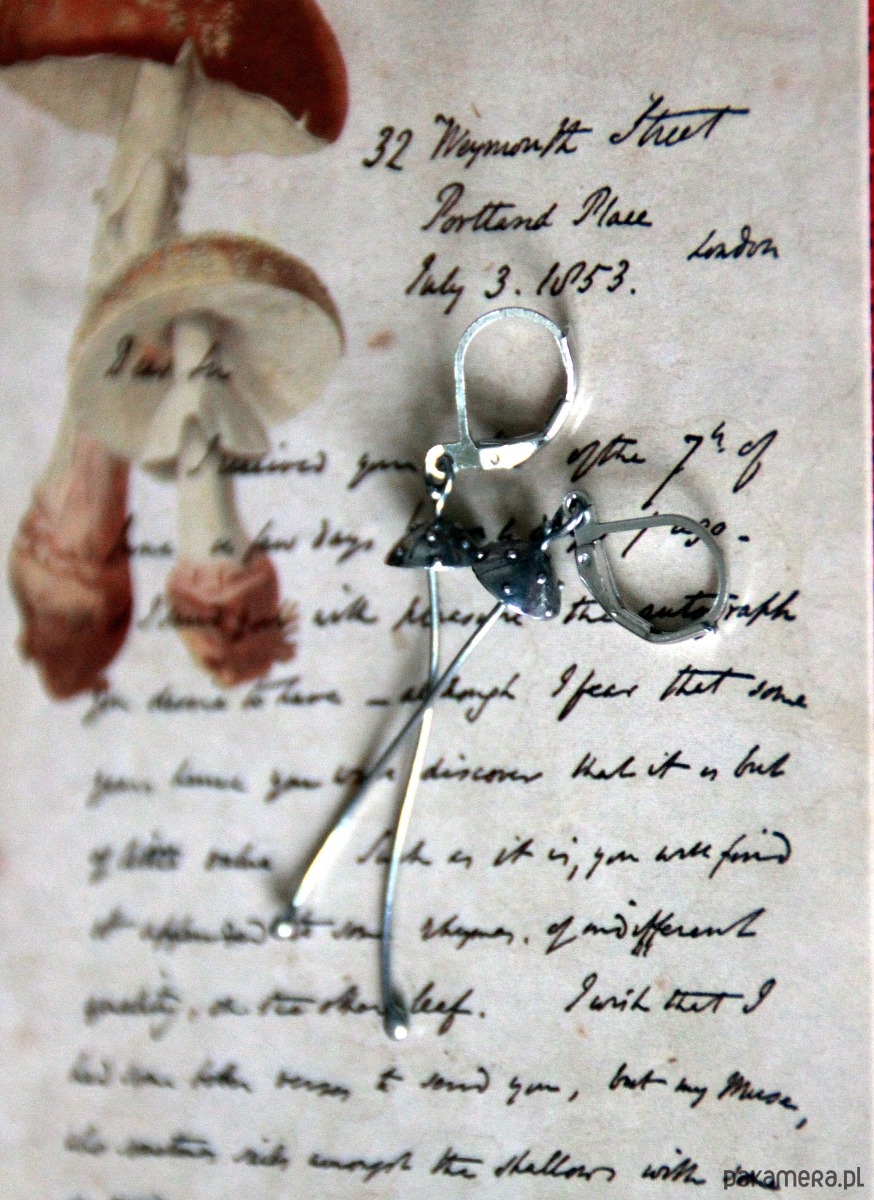 32 Weymouth Street
Portland Place
London
July 3. 1853.
Dear Sir
I received your of the 7th of
June a few days ago -
I send you with pleasure the autograph
you desire to have - although I fear that some
years hence you will discover that it is but
of little value Such as it is, you will find
it appended to some rhymes, of indifferent
quality, on the other leaf. I wish that I
had some better verses to send you, but my Muse,
who sometimes amongst the shallows with some
pakamera.pl